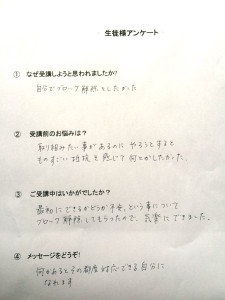 生徒様アンケート
① なぜ受講しようと思われましたか?
自分でブロック解除をしたかった
② 受講前のお悩みは?
取り組みたい事があるのに やろうとすると
ものすごい抵抗を感じて何とかしたかった。
③ ご受講中はいかがでしたか?
最初にできるかどうか不安、という事について
ブロック解除してもらったので、気楽にできました。
④ メッセージをどうぞ!
何があるとその都度対応できる自分に
なれます